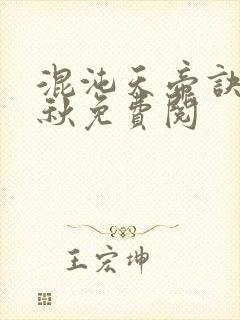 混沌天帝訣
秋免費閱
王宏坤